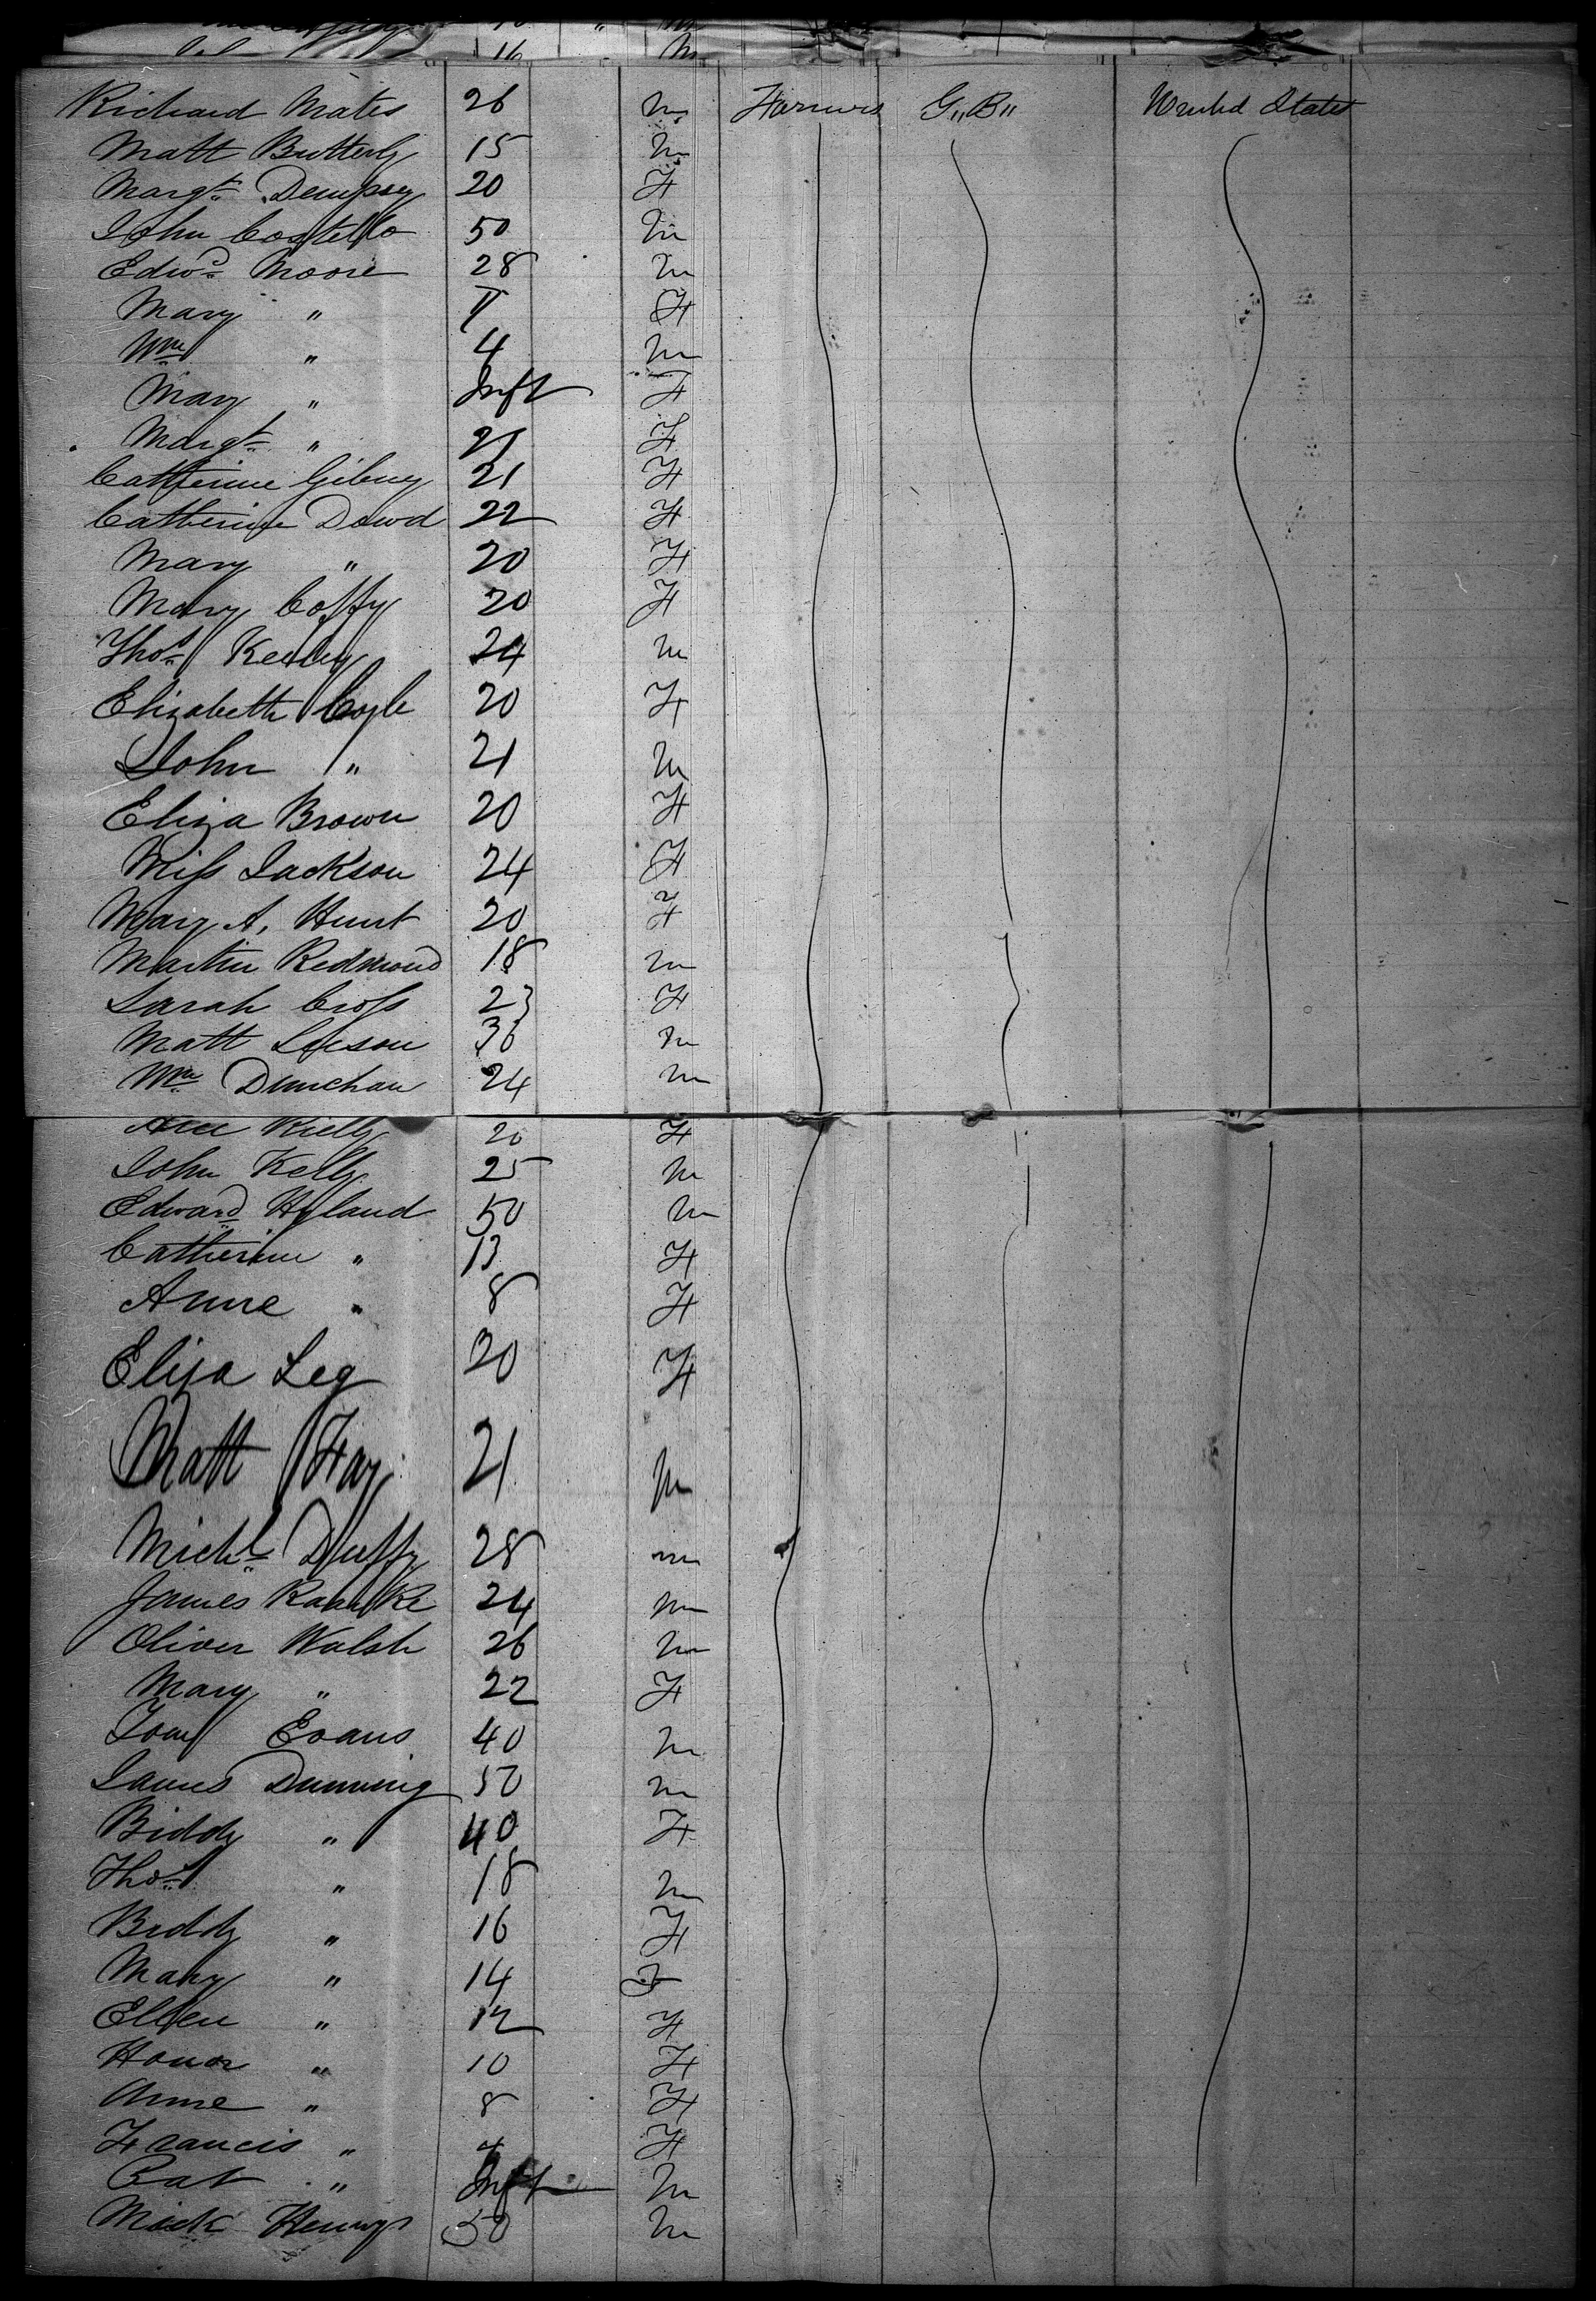 16 M
Richard Mates 26 M Farmers G,,B,, United States
Matt Butterly 15 M
Margt Dempsey 20 F
John Costello 50 M
Edwd Moore 28 M
Mary " F
Wm " 4 M
Mary " Inft F
Margt " 21 F
Catherine Gibney 21 F
Catherine Dowd 22 F
Mary " 20 F
Mary Coffy 20 F
Thos 24 M
Elizabeth Coyle 20 F
John " 21 M
Eliza Brown 20 F
Miss Jackson 24 F
Mary A. Hunt 20 F
Martin Redmond 18 M
Sarah Cross 23 F
Matt Leeson 36 M
Wm Dunchan 24 M
Ann Kielly 20 F
John Kelly 25 M
Edward Hyland 50 M
Catherine " 13 F
Anne " 8 F
Eliza Leg 30 F
Matt Fay 21 M
Michl Duffy 28 M
James 24 M
Oliver Walsh 26 M
Mary " 22 F
Tom Evans 40 M
James Dunning 50 M
Biddy " 40 F
Thos " 18 M
Biddy " 16 F
Mary " 14 F
Ellen " 12 F
Honor " 10 F
Anne " 8 F
Francis " 4 F
Pat " Inft M
Mick Henry 50 M